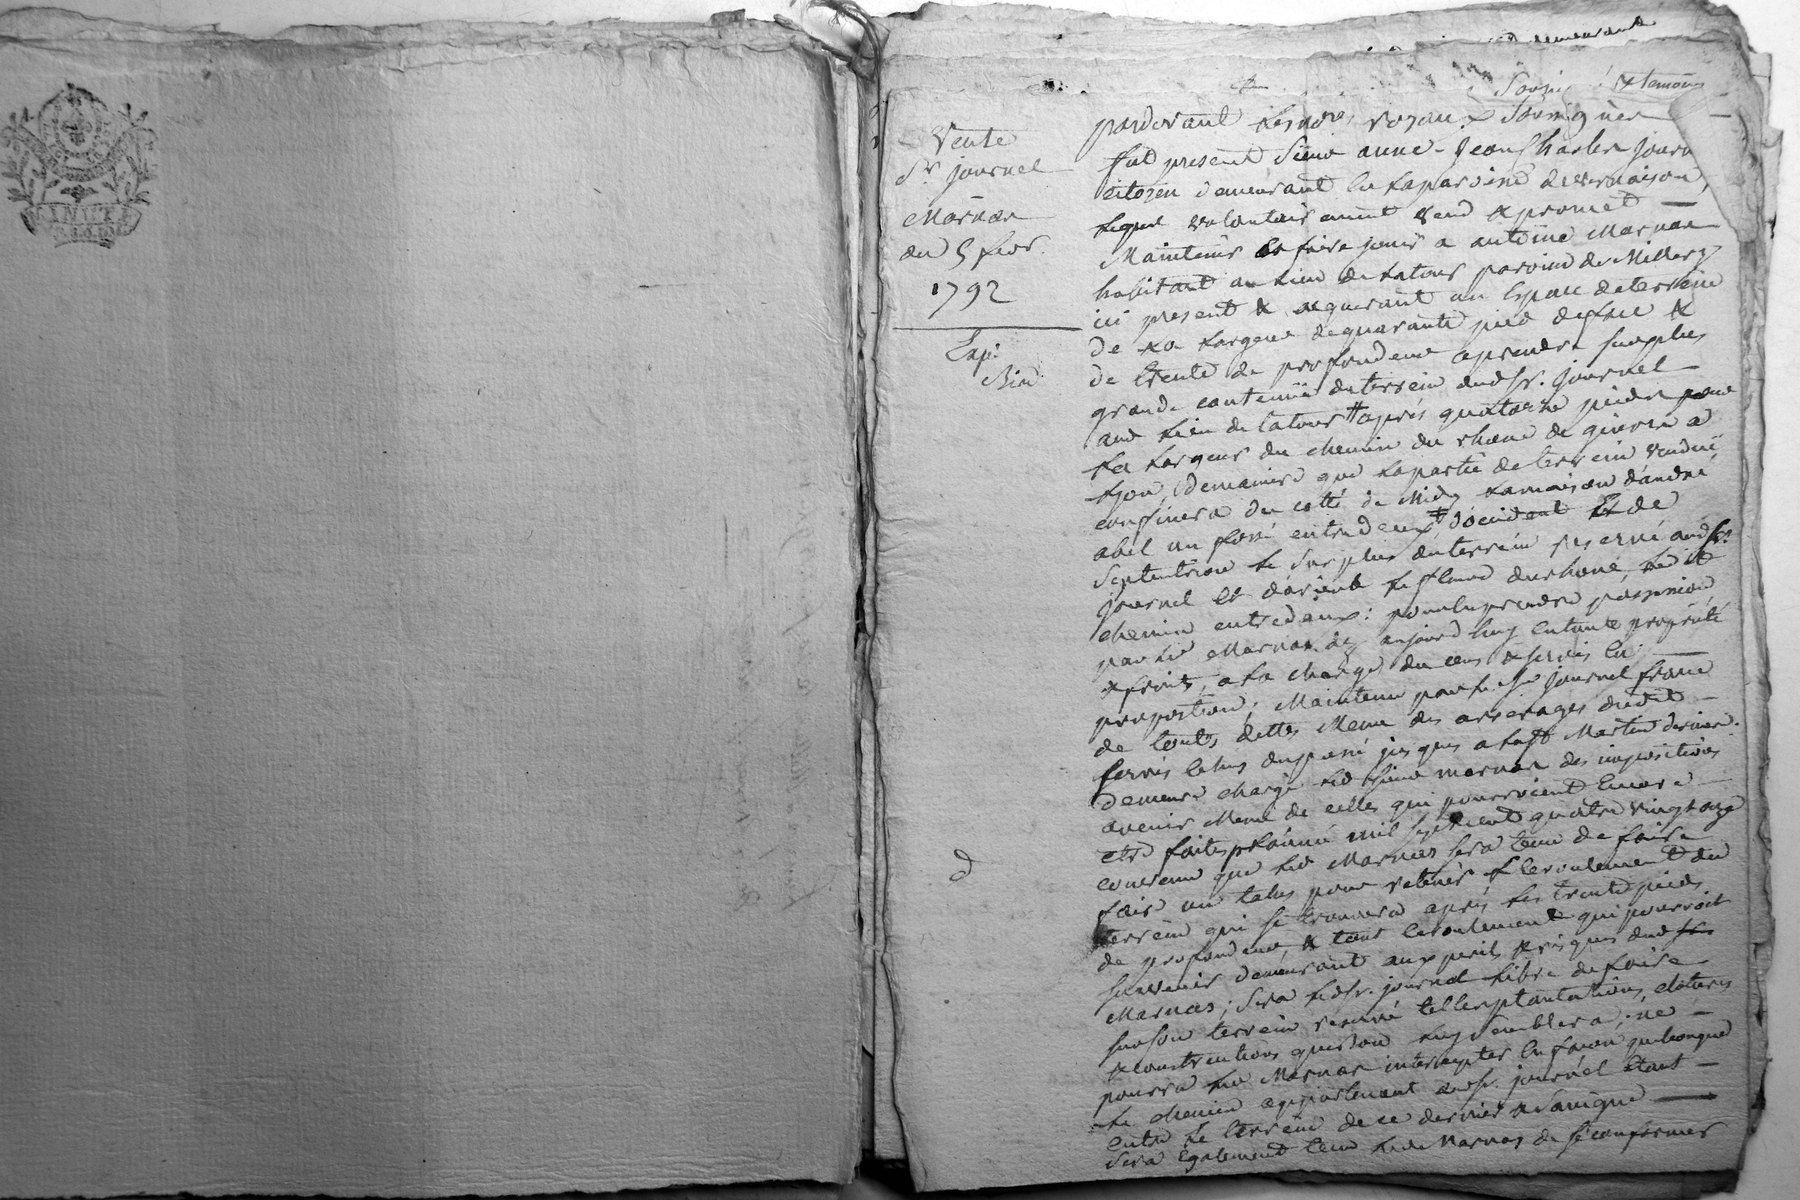 MINUTE
demeurant
Vente
Sr. journel
Marnas
du 5 fevr.
1792
Exp.
d
& temoins
pardevant les nores. royaux Soussignés
fut present Sieur anne-Jean Charles Journ
citoyen demeurant en la paroisse de vernaison,
lequel volontairement vend & promet
Maintenir & faire jouir a antoine Marnas
habitant au lieu de latour paroisse de Millery
ici present & acquerant un Espace de terrein
de la largeur de quarante pied de face &
de trente de profondeur a prendre sur plus
grande contenue du terrein dud Sr. journel
aud lieu de latour # aprés quatorze pieds pour
la largeur du chemin du rhone de givors a
lyon, de maniere que la partie de terrein vendue
confinera du cotté de Midy la maison d'andré
abel un fossé entre deux # d'occident Et de
Septentrion le surplus du terrein reservé aud Sr.
journel et d'orient le fleuve du rhone, ledit
chemin entredeux: pour en prendre possession
par led Marnas dez aujourd'huy en toute proprieté
& fruits, a la charge du cens & servis en
proportion; Maintenu par led. Sr. journel franc
de touts dettes Meme des arrerages dudit
servis Echus du passé jusques a la St Martin dernier.
demeure chargé led Sieur marnas des impositions
avenir Meme de celles qui pourroient Encore
etre faites pr l'année mil sept cent quatre vingt onze
convenu que led Marnas sera tenu de faire
faire un talus pour retenir l'eroulement du
terrein qui se trouvera aprés les trente pieds
de profondeur, & tout eroulement qui pourroit
survenir demeurant aux perils & risques dud
Marnas; Sera led Sr. journel libre de faire
sur son terrein reservé telles plantations, clotures
& constructions que bon luy Semblera; ne
pourra led Marnas intercepter En facon quelconque
le chemin appartenant aud Sr. journel Etant
entre le terrein de ce dernier &
Sera Egalement tenu led Marnas de se conformer